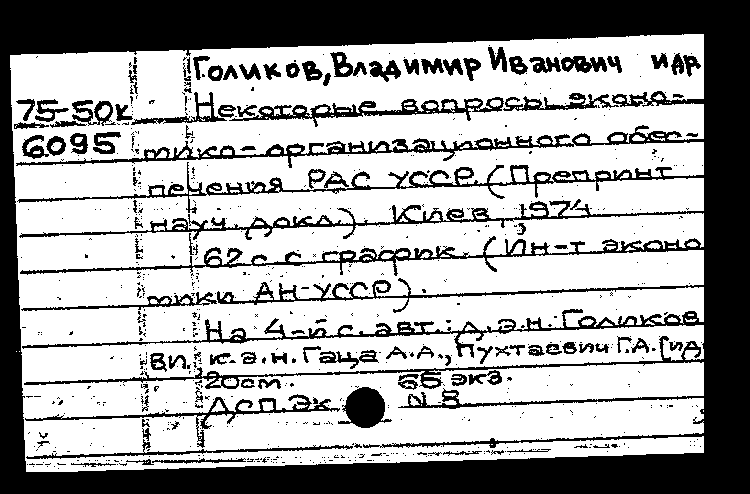 Голиков, Владимир Иванович идр
75-50к Некоторые вопросы эконо-
6095 мико-организационного обес-
печения РАС УССР. (Препринт
науч. докл.). Киев, 1974
62 с. с график. (Ин-т эконо
мики АН УССР).
На 4-й с. авт.: д.э.н. Голиков
В.И. к.э.н. Гаца А.А., Пухтаевич Г.А. [идр
20см. 65 экз.
ДСП. Эк N 8